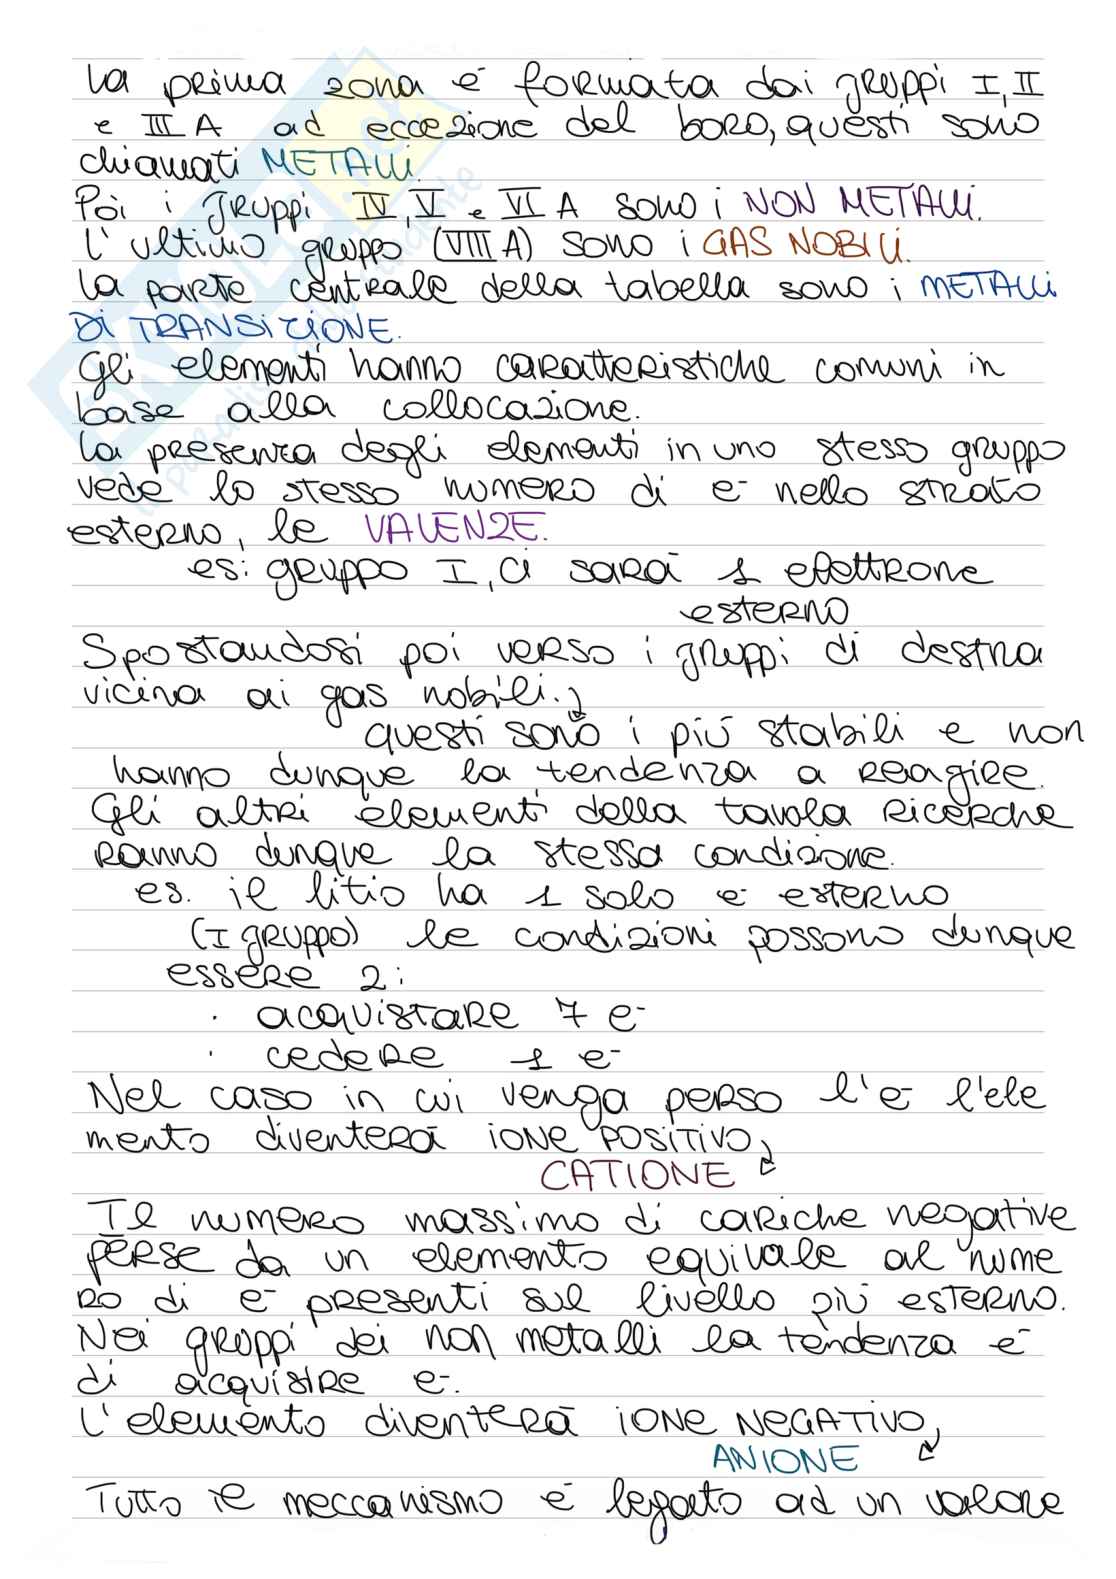 La prima zona è formata dai gruppi I, II
e III A ad eccezione del boro, questi sono
chiamati METALLI.
Poi i gruppi IV, V e VI A sono i NON METALLI.
L'ultimo gruppo (VIII A) sono i GAS NOBILI.
La parte centrale della tabella sono i METALLI
DI TRANSIZIONE.
Gli elementi hanno caratteristiche comuni in
base alla collocazione.
La presenza degli elementi in uno stesso gruppo
vede lo stesso numero di e- nello strato
esterno, le VALENZE.
es: gruppo I, ci sarà 1 elettrone
esterno
Spostandosi poi verso i gruppi di destra
vicina ai gas nobili.
questi sono i più stabili e non
hanno dunque la tendenza a reagire.
Gli altri elementi della tavola ricerche
ranno dunque la stessa condizione.
es. il litio ha 1 solo e- esterno
(I gruppo) le condizioni possono dunque
essere 2:
· acquistare 7 e-
· cedere 1 e-
Nel caso in cui venga perso l'e- l'ele
mento diventerà IONE POSITIVO,
CATIONE
Il numero massimo di cariche negative
perse da un elemento equivale al nume
ro di e- presenti sul livello più esterno.
Nei gruppi dei non metalli la tendenza è
di acquisire e-.
L'elemento diventerà IONE NEGATIVO,
ANIONE
Tutto il meccanismo è legato ad un valore
SKUOLA.net
il paradiso dello studente